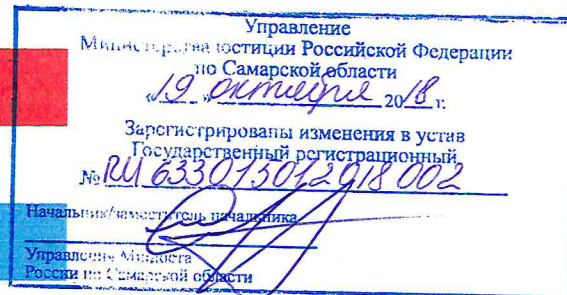 Управление
Министерства юстиции Российской Федерации
по Самарской области
«19» октября 2018 г.
Зарегистрированы изменения в устав
Государственный регистрационный
№ RU 633015012018002
Начальник/заместитель начальника
Управления Минюста
России по Самарской области